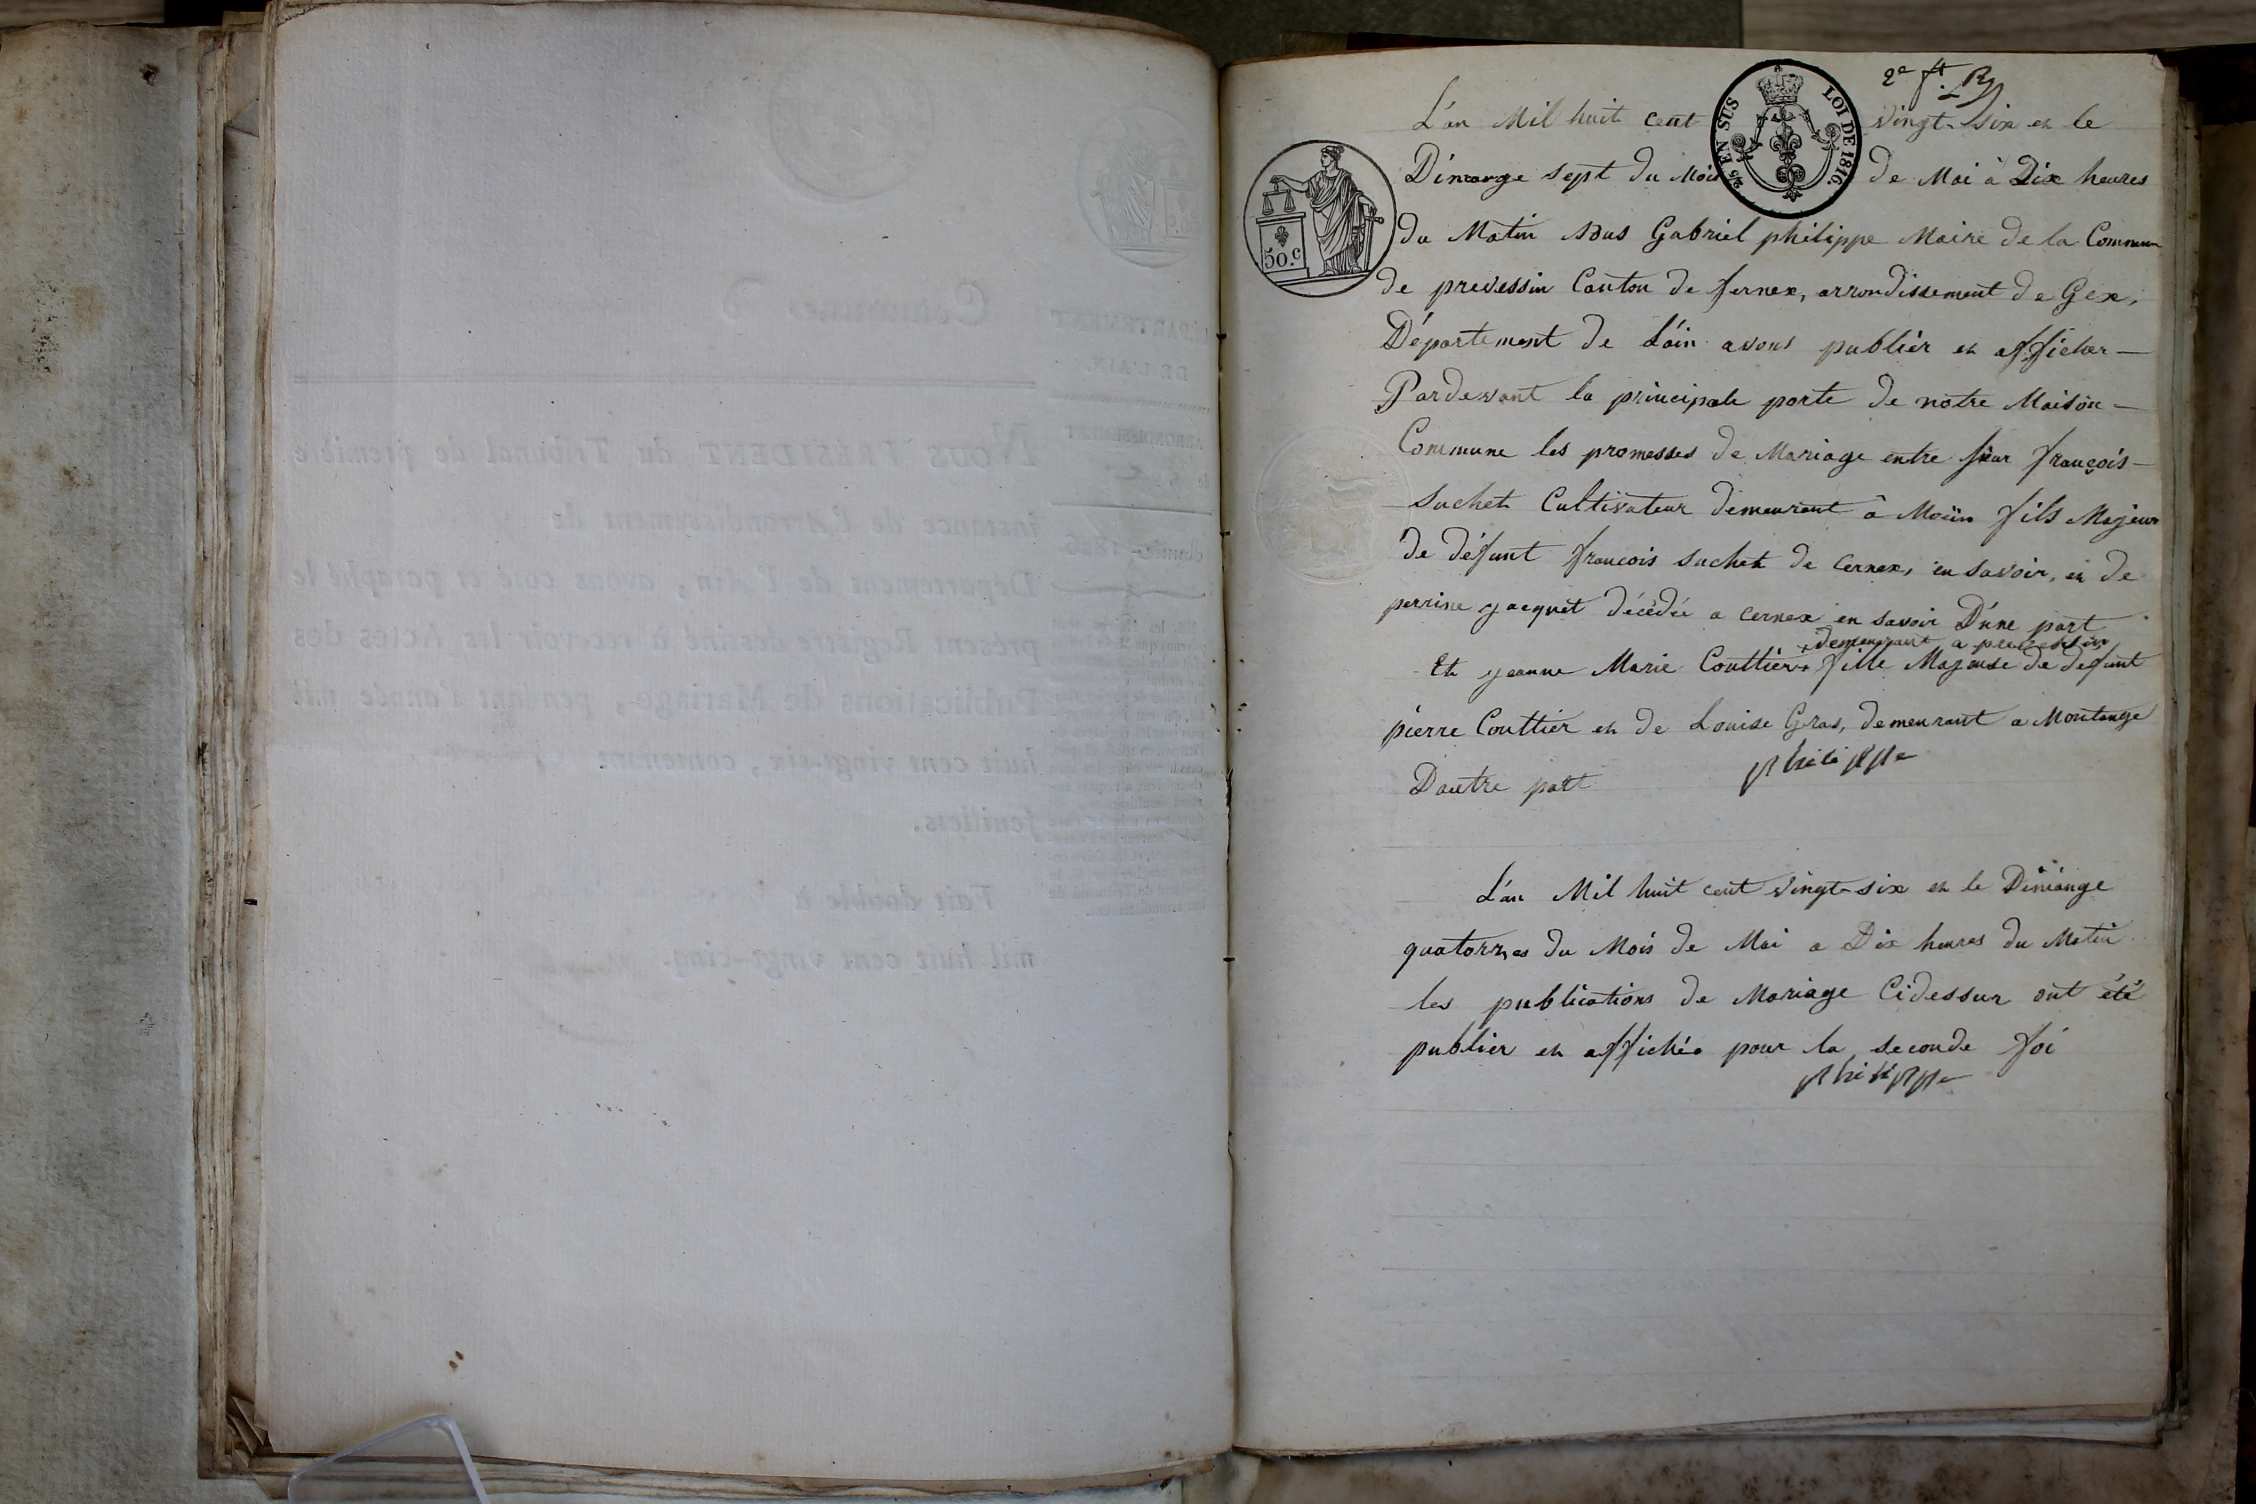 2e ft.
L'an Mil huit cent vingt-six et le
25 EN SUS
LOI DE 1816.
Dimange sept du Mois de Mai à Dix heures
50.c
du Matin nous Gabriel philippe Maire de la Commune
de prevessin Canton de fernex, arrondissement de Gex,
Département de L'áin avons publier et afficher —
Pardevant la principale porte de notre Maison —
Commune les promesses de Mariage entre sieur françois —
Suchet Cultivateur demeurant à Moëin fils Majeur
de défunt françois Suchet de Cernex, en Savoir, et de
perrine jacquet décédée a Cernex en Savoir D'une part
+ demeurant a prevessin
Et jeanne Marie Couttier + fille Majeuse de défunt
pierre Couttier et de Louise Gras, demeurant a Montange
Dautre part
philippe
L'an Mil huit cent vingt-six et le Dimange
quatorzes du Mois de Mai a Dix heures du Matin
les publications de Mariage Cidessur ont été
publier et affichéo pour la seconde foi
philippe
DÉPARTEMENT
DE L'AIN.
ARRONDISSEMENT
Commune
Année 1826
NOUS PRÉSIDENT du Tribunal de première
instance de l'Arrondissement de
Département de l'Ain, avons coté et paraphé le
présent Registre destiné à recevoir les Actes des
Publications de Mariage, pendant l'année mil
huit cent vingt-six, contenant
feuillets.
Fait double à
mil huit cent vingt-cinq.